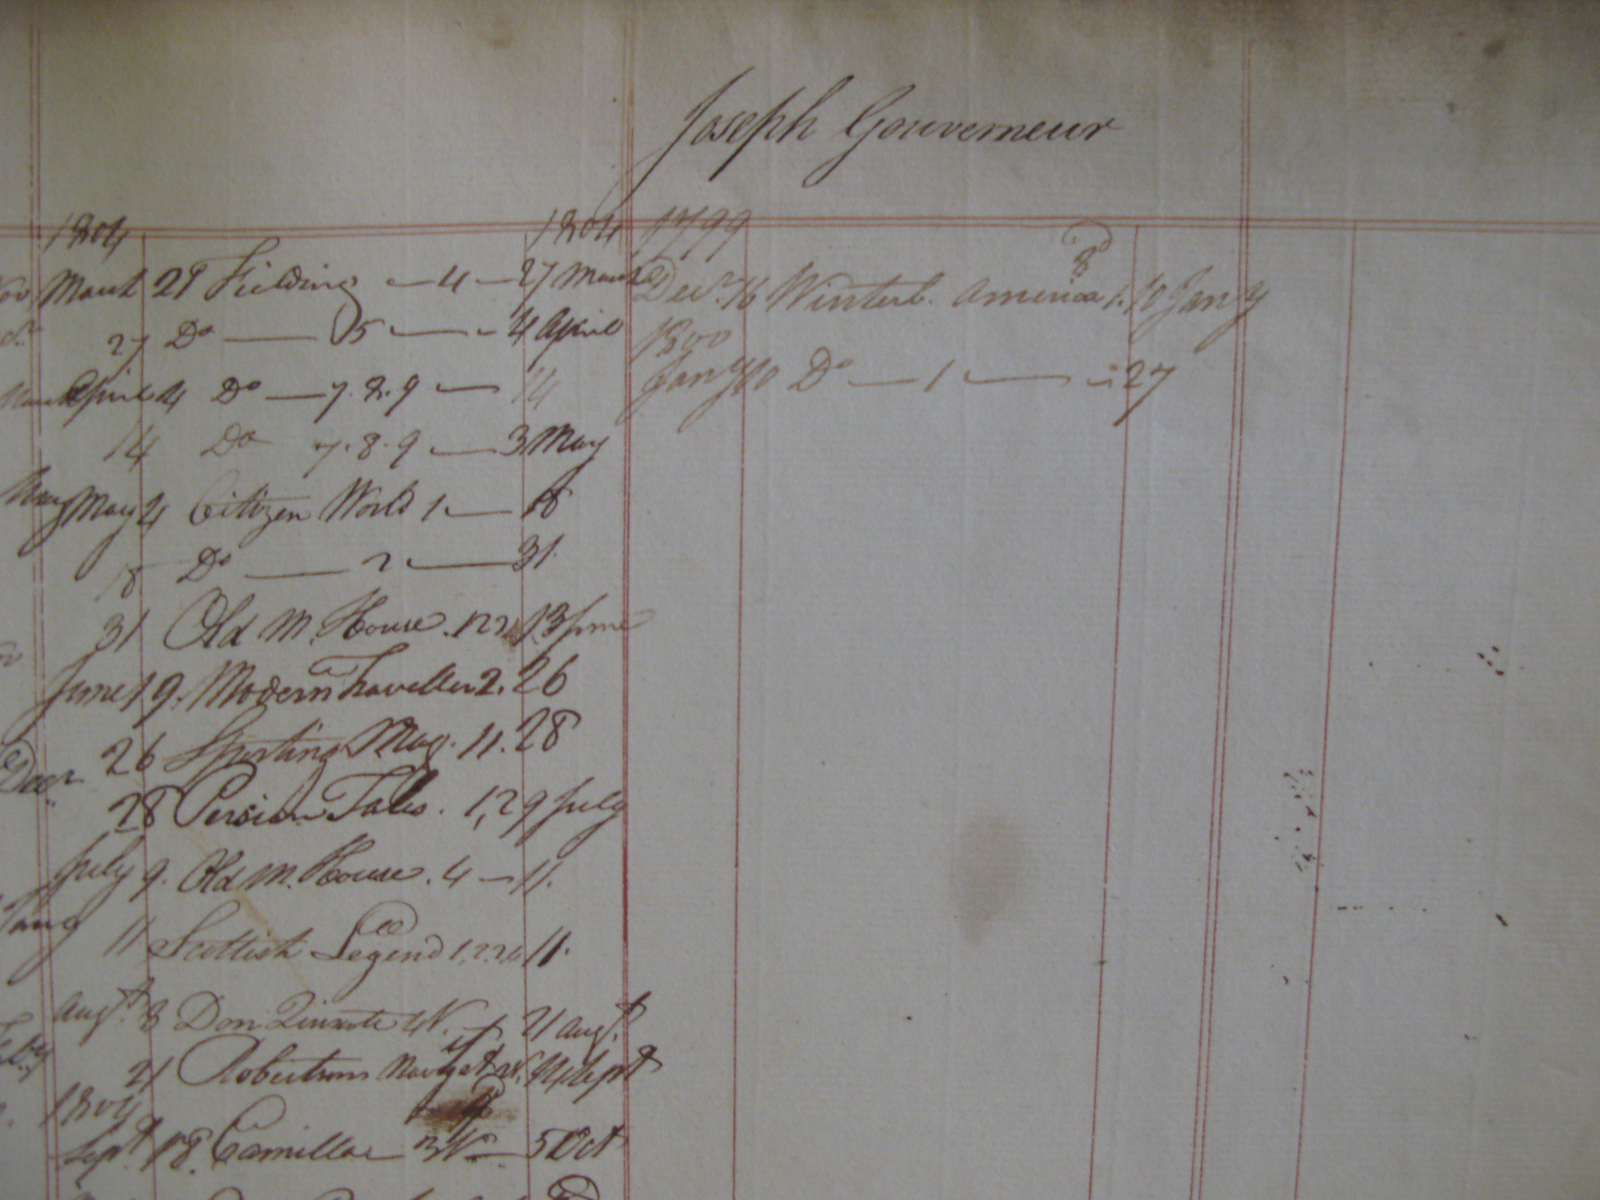 Joseph Gouverneur
1804 1804
March 21 Fielding — 4 — 27 March
27 Do — 5 — 4 April
April 4 Do — 7. 8. 9 — 14
14 Do 7. 8. 9 — 3 May
May 4 Citizen World 1 — 18
18 Do — 2 — 31
31 Old M. House. 1 2 13 June
June 19. Modern Traveller 2. 26
26 Sporting Mag. 11. 28
28 Persian Tales. 1, 2 9 July
July 9. Old M. House. 4 — 11.
11 Scottish Legend 11.
Augt. 8 Don Quixote 4 V. 21 Augt.
21 Robertsons Navigat Sept
Sept 18. Camilla 3 V — 5 Oct
1799
Decr. 16 Winterb. America 1. 10 Jany
8º
1800
Jany 10 Do — 1 — 27